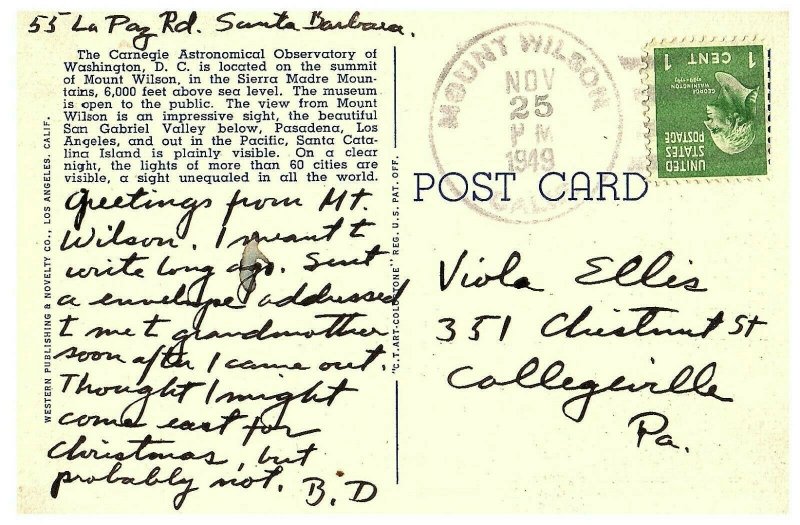 55 La Paz Rd. Santa Barbara.
The Carnegie Astronomical Observatory of
Washington, D. C. is located on the summit
of Mount Wilson, in the Sierra Madre Moun-
tains, 6,000 feet above sea level. The museum
is open to the public. The view from Mount
Wilson is an impressive sight, the beautiful
San Gabriel Valley below, Pasadena, Los
Angeles, and out in the Pacific, Santa Cata-
lina Island is plainly visible. On a clear
night, the lights of more than 60 cities are
visible, a sight unequaled in all the world.
Greetings from Mt.
Wilson. I meant t
write long ago. Sent
a envelope addressed
t me t grandmother
soon after I came out.
Thought I might
come east for
Christmas, but
probably not. B.D
WESTERN PUBLISHING & NOVELTY CO., LOS ANGELES, CALIF.
"C.T. ART-COLORTONE" REG. U.S. PAT. OFF.
MOUNT WILSON
NOV
25
PM
1949
CALIF.
POST CARD
1 CENT 1
GEORGE WASHINGTON
UNITED STATES
POSTAGE
Viola Ellis
351 Chestnut St
Collegeville
Pa.